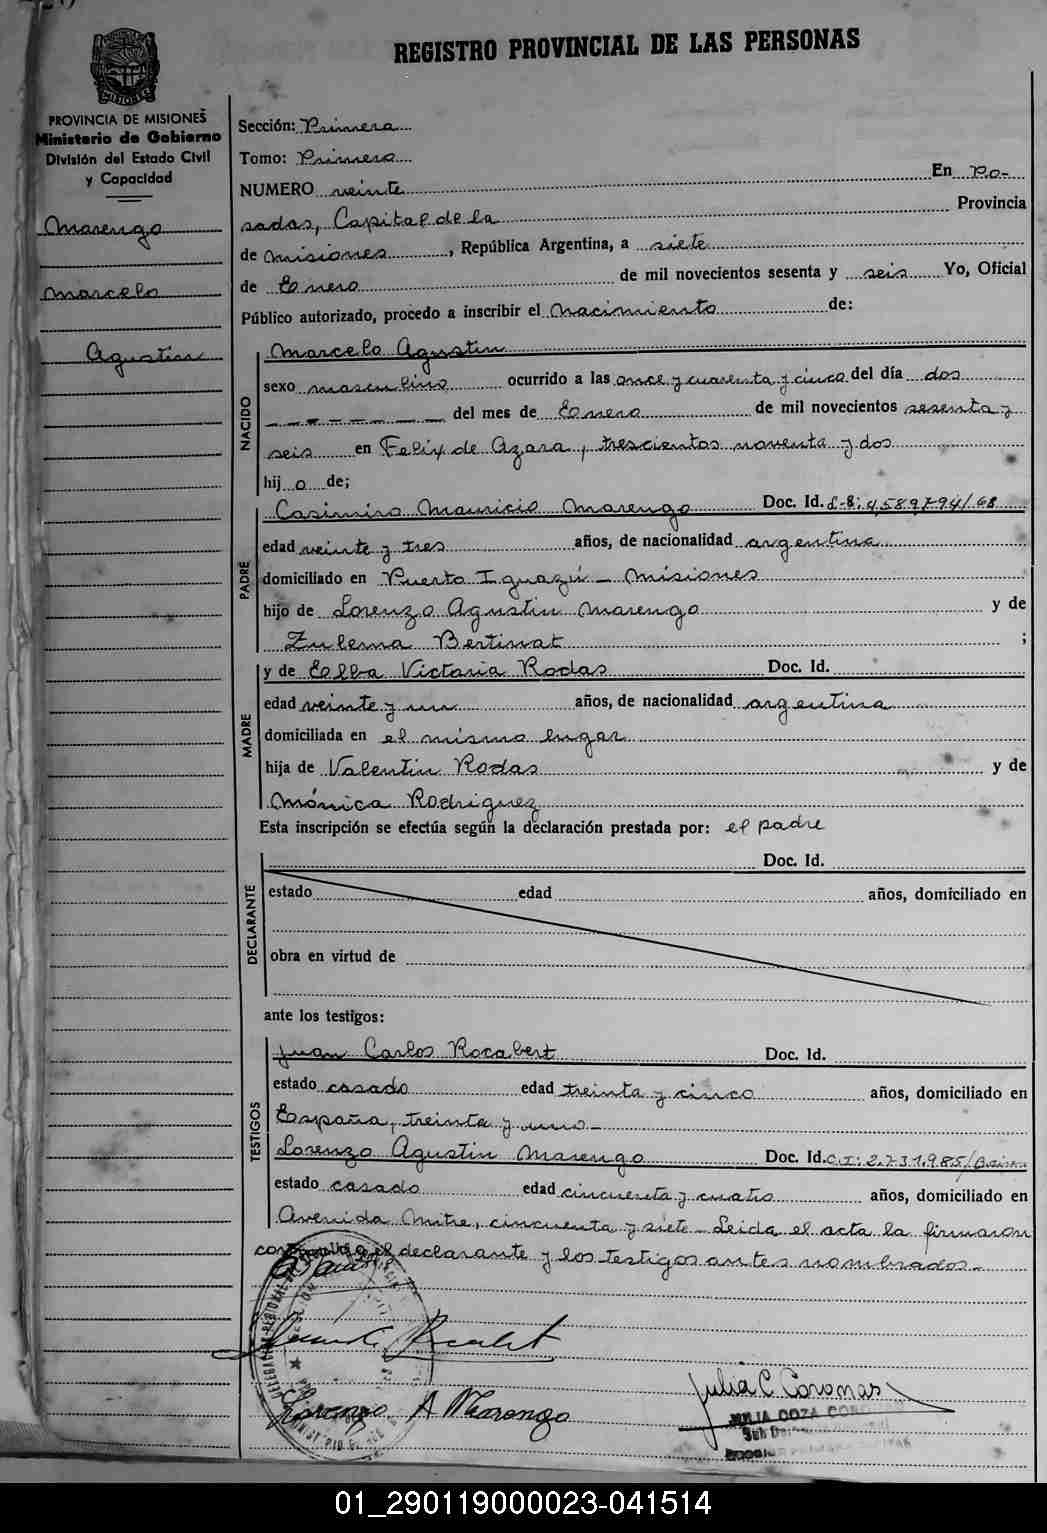 REGISTRO PROVINCIAL DE LAS PERSONAS
MISIONES
PROVINCIA DE MISIONES
Ministerio de Gobierno
División del Estado Civil
y Capacidad
Marengo
Marcelo
Agustin
Sección: Primera
Tomo: Primero
NUMERO veinte En Po-
sadas, Capital de la Provincia
de Misiones, República Argentina, a siete
de Enero de mil novecientos sesenta y seis Yo, Oficial
Público autorizado, procedo a inscribir el nacimiento de:
NACIDO
Marcelo Agustin
sexo masculino ocurrido a las once y cuarenta y cinco del día dos
_ _ _ _ _ _ _ del mes de Enero de mil novecientos sesenta y
seis en Felix de Azara, trescientos noventa y dos
hij o de;
PADRE
Casimiro Mauricio Marengo Doc. Id. L-8: 4,589,794/68
edad veinte y tres años, de nacionalidad argentina
domiciliado en Puerto Iguazú - Misiones
hijo de Lorenzo Agustin Marengo y de
Zulema Bertinat ;
MADRE
y de Elba Victoria Rodas Doc. Id.
edad veinte y un años, de nacionalidad argentina
domiciliada en el mismo lugar
hija de Valentin Rodas y de
Mónica Rodriguez
Esta inscripción se efectúa según la declaración prestada por: el padre
DECLARANTE
Doc. Id.
estado edad años, domiciliado en
obra en virtud de
ante los testigos:
TESTIGOS
Juan Carlos Rocabert Doc. Id.
estado casado edad treinta y cinco años, domiciliado en
España, treinta y uno-
Lorenzo Agustin Marengo Doc. Id. C.I: 2.731.985/
estado casado edad cincuenta y cuatro años, domiciliado en
Avenida Mitre, cincuenta y siete- Leida el acta la firmaron
conmigo el declarante y los testigos antes nombrados.-
Lorenzo A Marengo
Julia C. Coronas
JULIA COZA
01_290119000023-041514